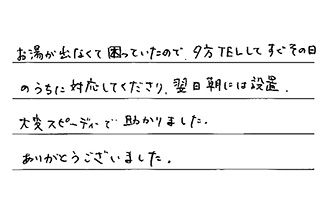 お湯が出なくて困っていたので、夕方TELしてすぐその日
のうちに対応してくださり、翌日朝には設置。
大変スピーディーで助かりました。
ありがとうございました。